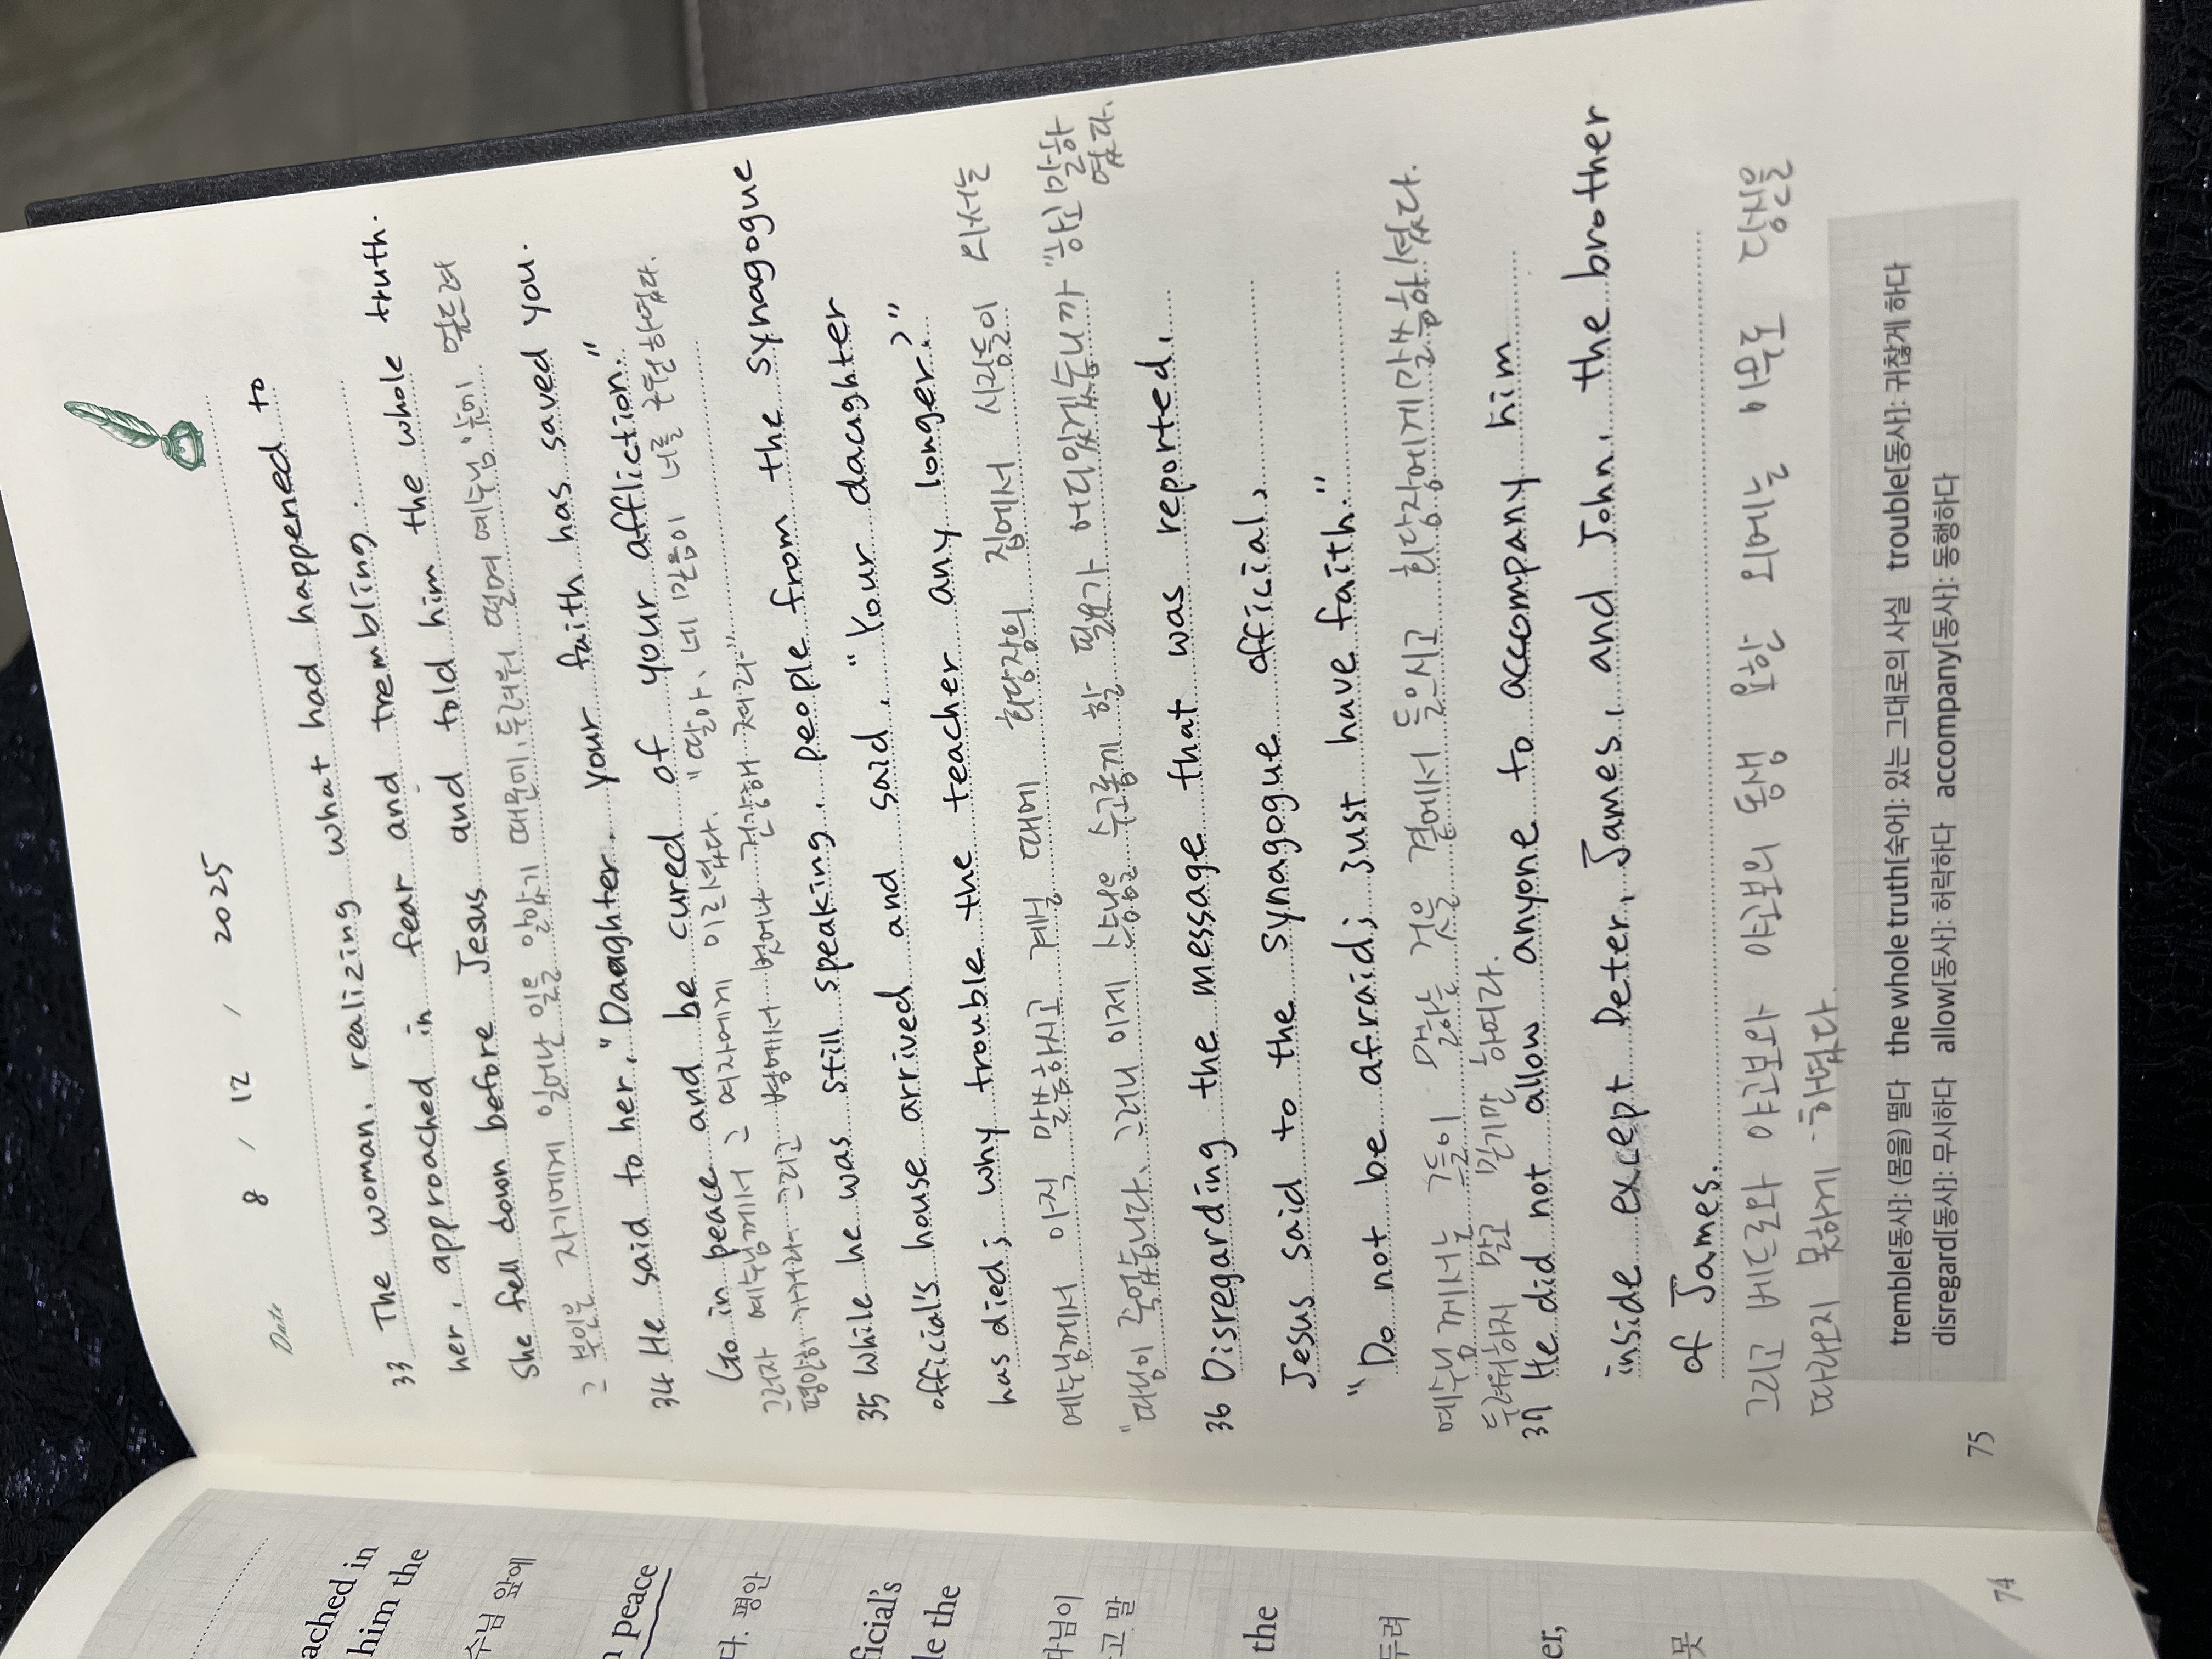 Date 8 / 12 / 2025
33 The woman, realizing what had happened to
her, approached in fear and trembling.
She fell down before Jesus and told him the whole truth.
그 부인은 자기에게 일어난 일을 알았기 때문에, 두려워 떨며 예수님 앞에 엎드려
34 He said to her, "Daughter, your faith has saved you.
Go in peace and be cured of your affliction."
그러자 예수님께서 그 여자에게 이르셨다. "딸아, 네 믿음이 너를 구원하였다.
평안히 가거라. 그리고 병에서 벗어나 건강해져라"
35 While he was still speaking, people from the synagogue
official's house arrived and said, "Your daughter
has died; why trouble the teacher any longer?"
예수님께서 아직 말씀하시고 계실 때에 회당장의 집에서 사람들이 와서는
"따님이 죽었습니다. 그러니 이제 스승님을 수고롭게 할 필요가 어디있겠습니까" 하고 말하
였다.
36 Disregarding the message that was reported,
Jesus said to the synagogue official,
"Do not be afraid; just have faith."
예수님께서는 그들이 말하는 것을 곁에서 들으시고 회당장에게 말씀하셨다.
두려워하지 말고 믿기만 하여라.
37 He did not allow anyone to accompany him
inside except Peter, James, and John, the brother
of James.
그리고 베드로와 야고보와 야고보의 동생 요한 외에는 아무도 당신을
따라오지 못하게 하셨다.
tremble[동사]: (몸을) 떨다 the whole truth[숙어]: 있는 그대로의 사실 trouble[동사]: 귀찮게 하다
disregard[동사]: 무시하다 allow[동사]: 허락하다 accompany[동사]: 동행하다
75
ached in
him the
수님 앞에
peace
다. 평안
ficial's
le the
따님이
고 말
the
두려
er,
못
74